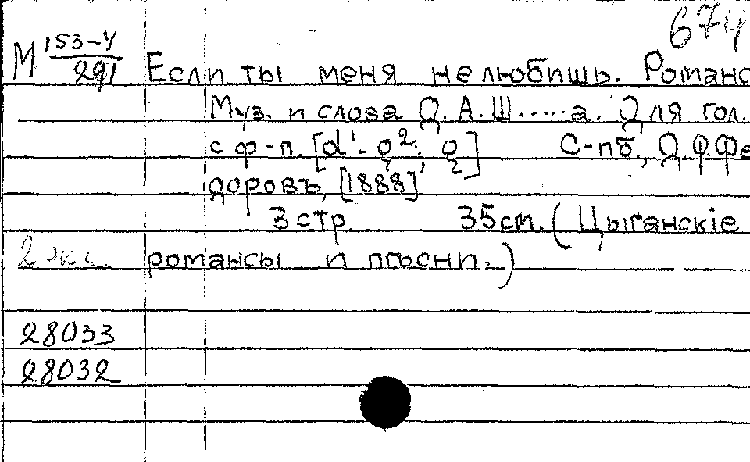 674
М 153-4/291 Если ты меня не любишь. Романс
Муз. и слова Д. А. Ш.....а. Для гол.
с ф-п. [d¹-g²; g] С-пб., Д. Ф. Фе-
доровъ, [1888]
3 стр. 35 см. (Цыганскіе
2 экз. романсы и пѣсни.)
28033
28032